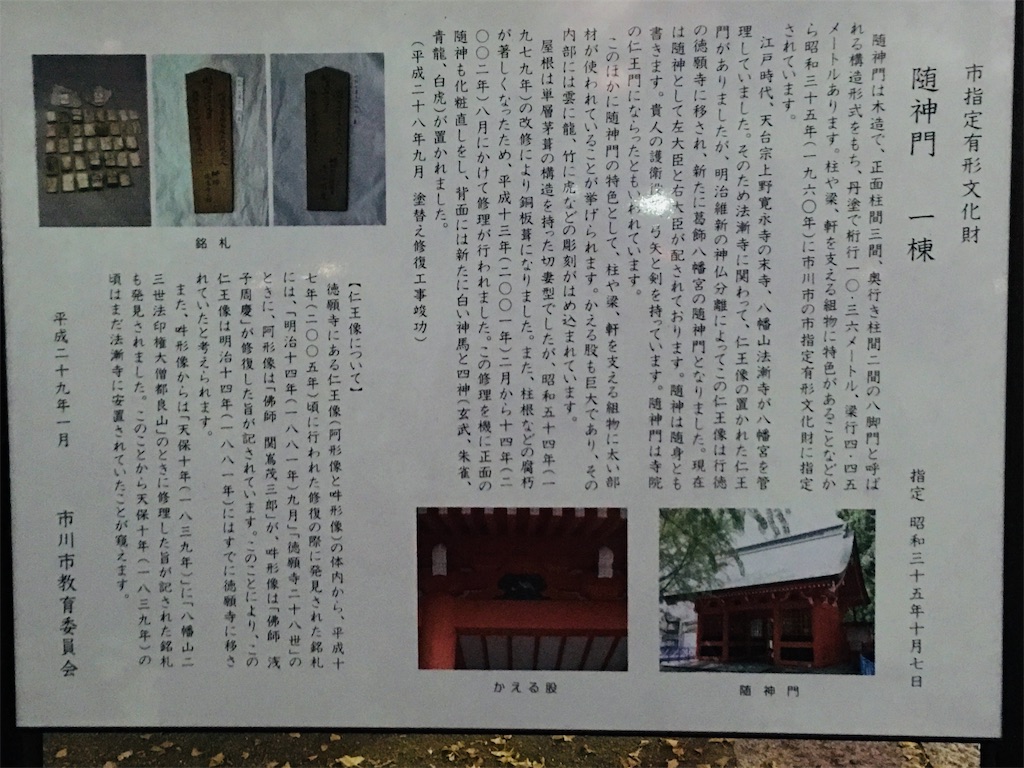 市指定有形文化財
随神門 一棟
指定 昭和三十五年十月七日
随神門は木造で、正面柱間三間、奥行き柱間二間の八脚門と呼ば
れる構造形式をもち、丹塗で桁行一〇・三六メートル、梁行四・四五
メートルあります。柱や梁、軒を支える組物に特色があることなどか
ら昭和三十五年(一九六〇年)に市川市の市指定有形文化財に指定
されています。
江戸時代、天台宗上野寛永寺の末寺、八幡山法漸寺が八幡宮を管
理していました。そのため法漸寺に関わって、仁王像の置かれた仁王
門がありましたが、明治維新の神仏分離によってこの仁王像は行徳
の徳願寺に移され、新たに葛飾八幡宮の随神門となりました。現在
は随神として左大臣と右大臣が配されております。随神は随身とも
書きます。貴人の護衛 弓矢と剣を持っています。随神門は寺院
の仁王門にならったともいわれています。
このほかに随神門の特色として、柱や梁、軒を支える組物に太い部
材が使われていることが挙げられます。かえる股も巨大であり、その
内部には雲に龍、竹に虎などの彫刻がはめ込まれています。
屋根は単層茅葺の構造を持った切妻型でしたが、昭和五十四年(一
九七九年)の改修により銅板葺になりました。また、柱根などの腐朽
が著しくなったため、平成十三年(二〇〇一年)二月から十四年(二
〇〇二年)八月にかけて修理が行われました。この修理を機に正面の
随神も化粧直しをし、背面には新たに白い神馬と四神(玄武、朱雀、
青龍、白虎)が置かれました。
(平成二十八年九月 塗替え修復工事竣功)
随神門
かえる股
銘札
【仁王像について】
徳願寺にある仁王像(阿形像と吽形像)の体内から、平成十
七年(二〇〇五年)頃に行われた修復の際に発見された銘札
には、「明治十四年(一八八一年)九月」「徳願寺二十八世」の
ときに、阿形像は「佛師 関嶌茂三郎」が、吽形像は「佛師 浅
子周慶」が修復した旨が記されています。このことにより、この
仁王像は明治十四年(一八八一年)にはすでに徳願寺に移さ
れていたと考えられます。
また、吽形像からは「天保十年(一八三九年)」に「八幡山二
三世法印権大僧都良山」のときに修理した旨が記された銘札
も発見されました。このことから天保十年(一八三九年)の
頃はまだ法漸寺に安置されていたことが窺えます。
平成二十九年一月
市川市教育委員会